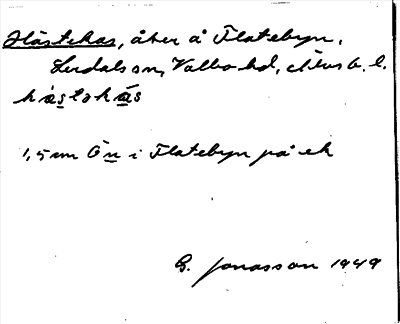 Hästekas, åker å Flatebyn,
Lerdals sn, Valbo hd, Älvsb. l.
hä̱stəkä̱s
1,5 km Ö̱n i Flatebyn på ek
G. Jonasson 1949